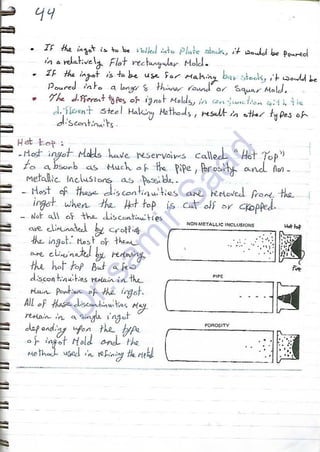 44
• If the ingot is to be rolled into plate stock, it would be poured
in a relatively flat rectangular Mold.
• If the ingot is to be use for making bar stocks, it would be
Poured into a longer & thinner round or squar Mold.
• The different types of ignot Molds, in conjunction with the
different steel Making Methods, result in other types of
discontinuits.
Hot top :
- Most ingot Molds have reservoirs called "Hot Top"
to absorb as Much of the pipe, porosity and non-
metallic inclusions as possible.
- Most of these discontinuities are removed from the
ingot when the Hot top is cut off or cropped.
- Not all of the discontinuities
are eliminated by cropping
the ingot. Most of them
are eliminated by removing
the hot top But a few
discontinuities remain in the
Main Portion of the ingot.
All of these discontinuities May
remain in a single ingot
depending upon the type
of ingot Mold and the
Method used in refining the metal
NON-METALLIC INCLUSIONS
Hot top
Pipe
PIPE
POROSITY